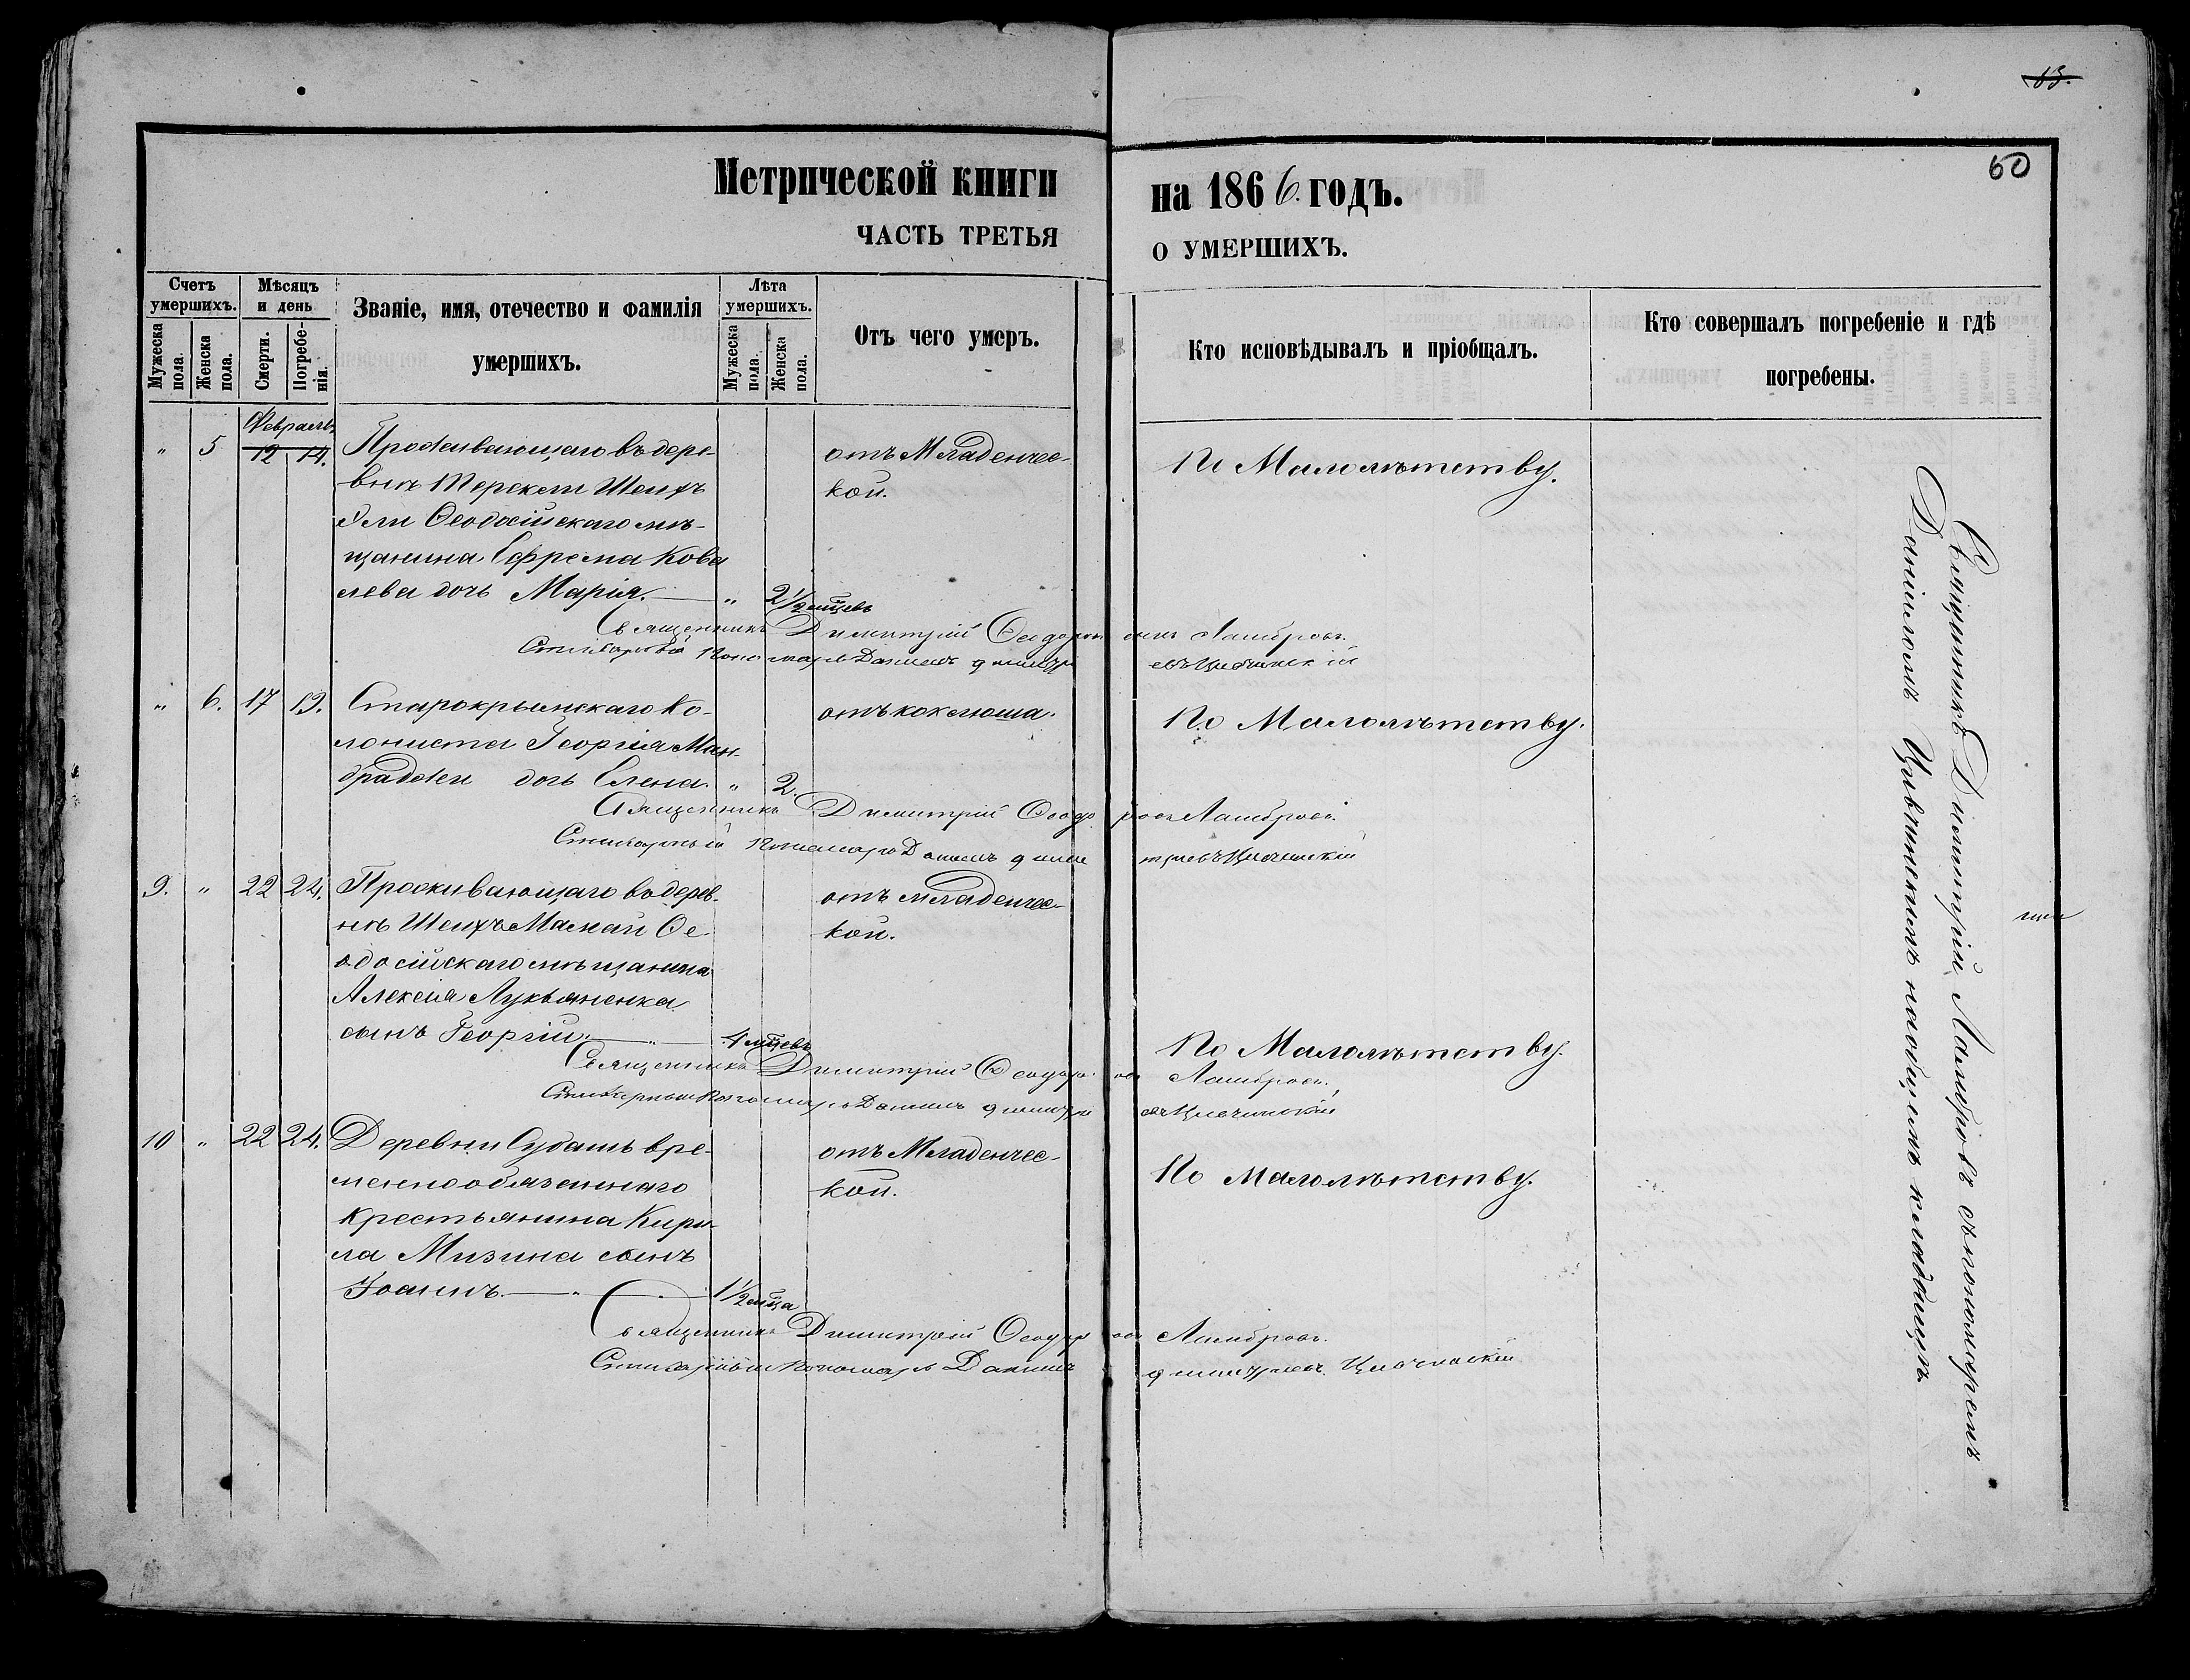 13.
60
Метрической книги на 1866. годъ.
ЧАСТЬ ТРЕТЬЯ О УМЕРШИХЪ.
Счетъ умершихъ.
Мужеска пола.
Женска пола.
Мѣсяцъ и день
Смерти.
Погребе-
нія.
Званіе, имя, отечество и фамилія
умершихъ.
Лѣта умершихъ.
Мужеска пола.
Женска пола.
Отъ чего умеръ.
Кто исповѣдывалъ и пріобщалъ.
Кто совершалъ погребеніе и гдѣ
погребены.
Февраль
" 5 12 14. Проживающаго въ дере-
внѣ Шеихъ
Эли Ѳеодосійскаго мѣ-
щанина Ефрема Кова
лева дочь Марія. " 2 1/2 мѣсцевъ
отъ Младенчес-
кой.
По Малолѣтству.
Священникъ Димитрій Ѳеодоровъ Ламбровъ.
Стихарный Пономарь Даніилъ
" 6. 17 19. Старокрымскаго Ко-
лониста Георгія Ман-
дочь Елена. " 2.
отъ коклюша.
По Малолѣтству.
Священникъ Димитрій Ѳеодоровъ Ламбровъ.
Стихарный Пономарь Даніилъ
9. " 22 24. Проживающаго въ дерев-
нѣ Шеихъ Мамай Ѳе-
одосійскаго мѣщанина
Алексія Лукьяненка
сынъ Георгій. 4 мѣсцевъ
отъ младенчес-
кой.
По Малолѣтству.
Священникъ Димитрій Ѳеодоровъ Ламбровъ.
Стихарный Пономарь Даніилъ
10 " 22 24. Деревни Субашъ вре-
меннообязаннаго
крестьянина Кири-
ла Мизина сынъ
Іоаннъ. 1 1/2 мѣсца
отъ Младенчес-
кой.
По Малолѣтству.
Священникъ Димитрій Ѳеодоровъ Ламбровъ.
Стихарный Пономарь Даніилъ
Священникъ Димитрій Ламбровъ съ пономаремъ
Даніиломъ на общемъ кладбищѣ.